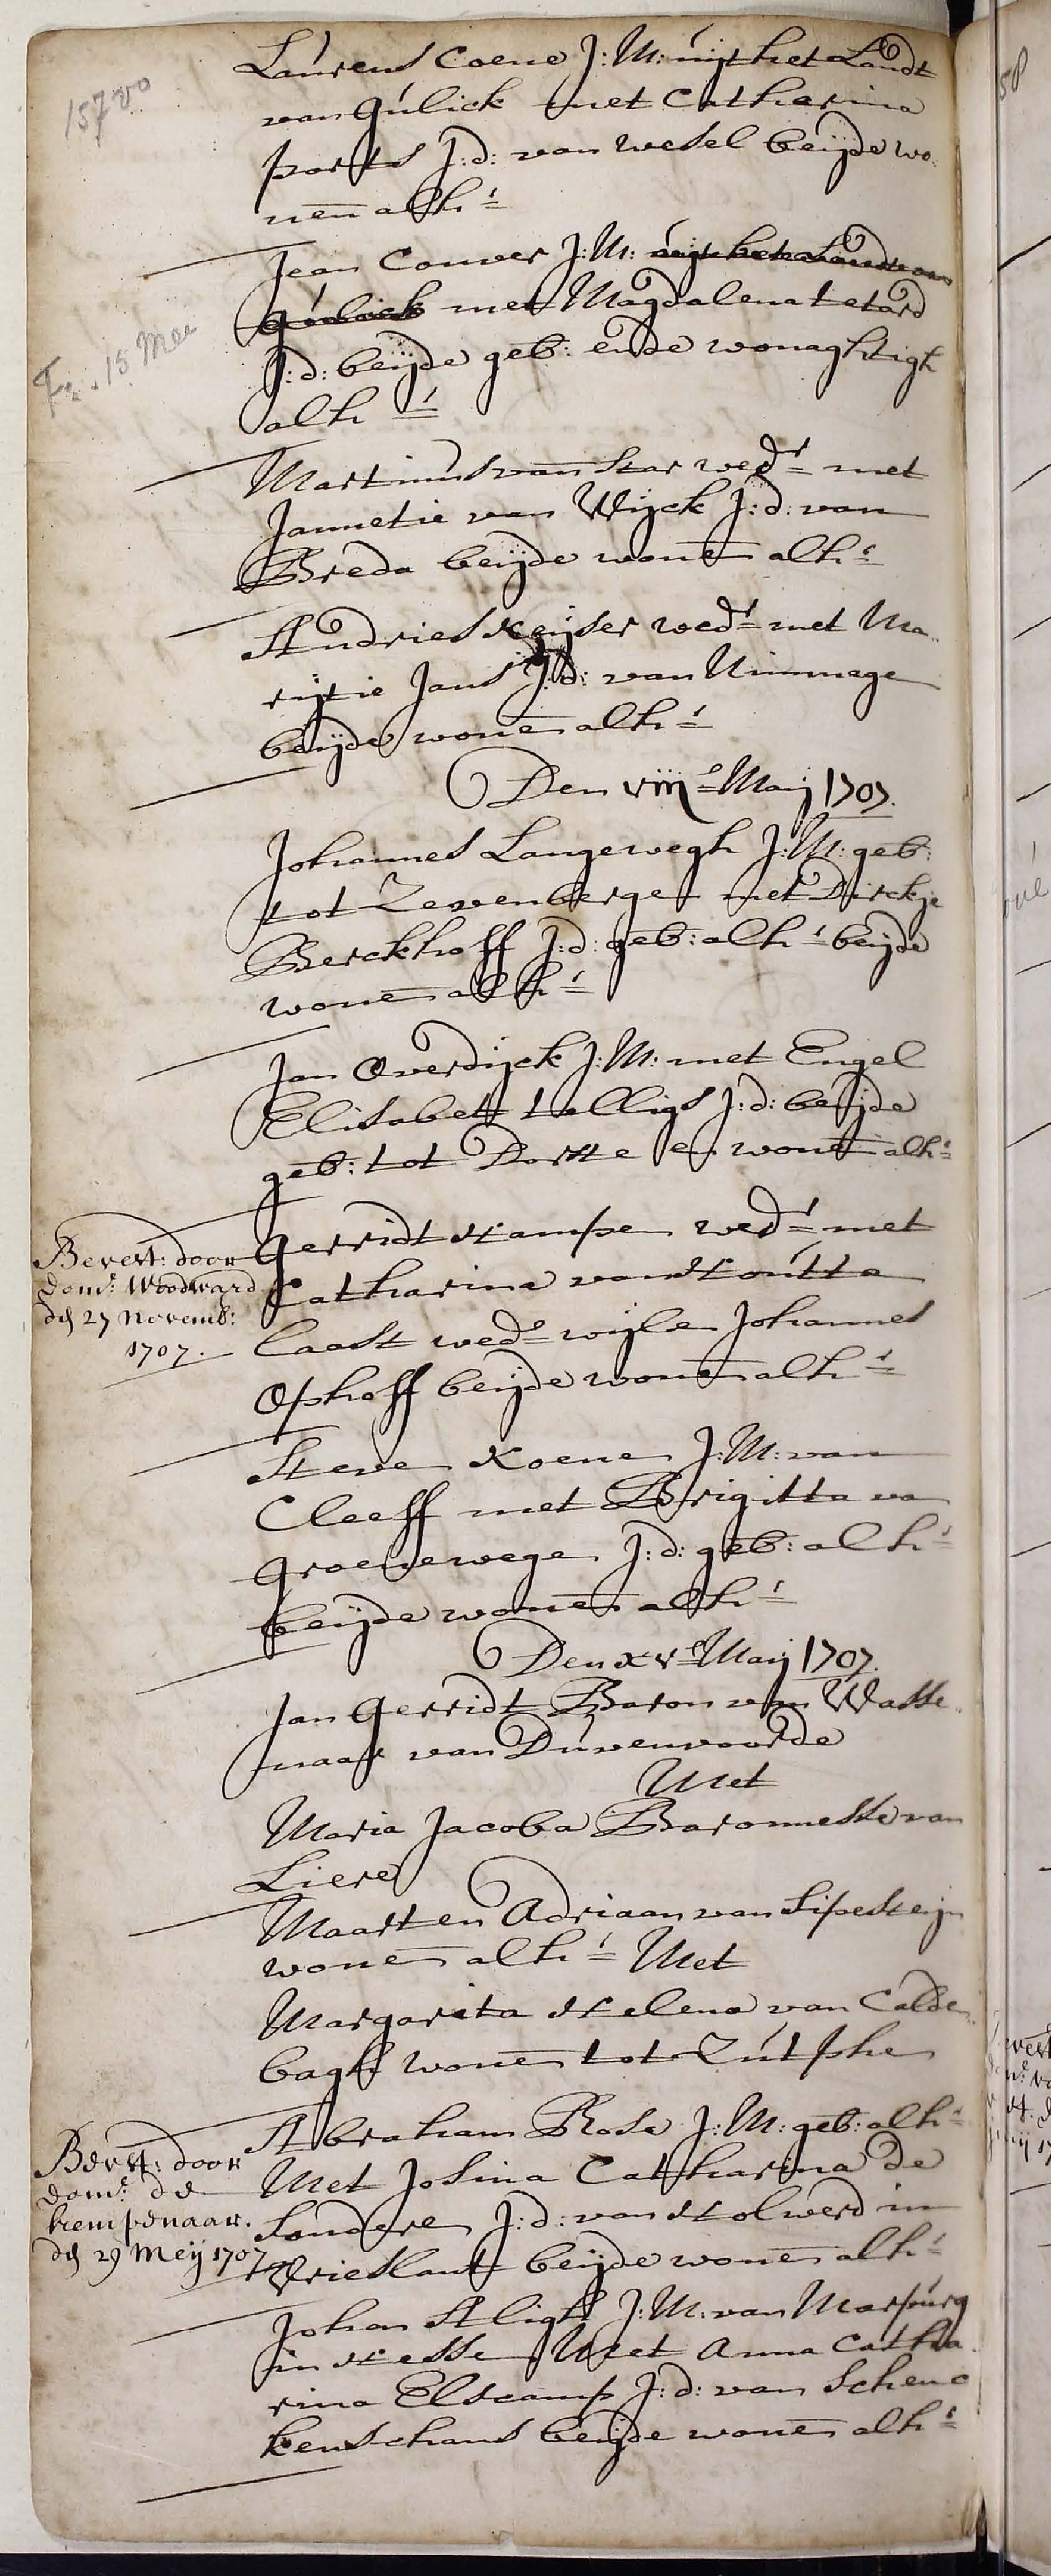 157 vo
Laurens Coene J: M: uijt het Landt
van Gulick met Catharina
J: d: van Wesel beijde wo„
nen alhr
Jean Couver J: M: uijt het Landt van
Gulick met Magdalena tetard
J: d: beijde geb: ende wonaghtigh
alhr
15 Mei
Martinus van Star wedr met
Jannetie van Wijck J: d: van
Breda beijde wonen alhr
Andries Keijser wedr met Ma„
rijtie Jans J: d: van Nimmage
beijde wonen alhr
Den viije Maij 1707.
Johannes Langewegh J: M: geb:
tot Zevenbergen met Dirckje
Berckhoff J: d: geb: alhr beijde
wonen alhr
Jan Overdijck J: M: met Engel
Elisabeth tolligs J: d: beijde
geb: tot Dorste en wonen alhr
Bevest: door
dom: Woodward
den 27 novemb:
1707.
Gerridt Hampe wedr met
Catharina van Houtta
laast wede wijlen Johannes
Ophoff beijde wonen alhr
Steven Koenen J: M: van
Cleeff met Brigitta van
Groenewege J: d: geb: alhr
beijde wonen alhr
Den xve Maij 1707.
Jan Gerridt Baron van Wasse„
naar van Duvenvoorde
Met
Maria Jacoba Baronnesse van
Liere
Maarten Adriaan van Sipesteijn
wonen alhr Met
Margarita Helena van Calde„
bagh wonen tot Zutphen
Bevest: door
dom: de
kempenaar.
den 29 Meij 1707
Abraham Rose J: M: geb: alhr
Met Josina Catharina de
Sandere J: d: van Holwerd in
Vrieslant beijde wonen alhr
Johan Sligh J: M: van Marpurg
in Hesse Met Anna Catha„
rina Elscamp J: d: van Schenc
kenschans beijde wonen alhr